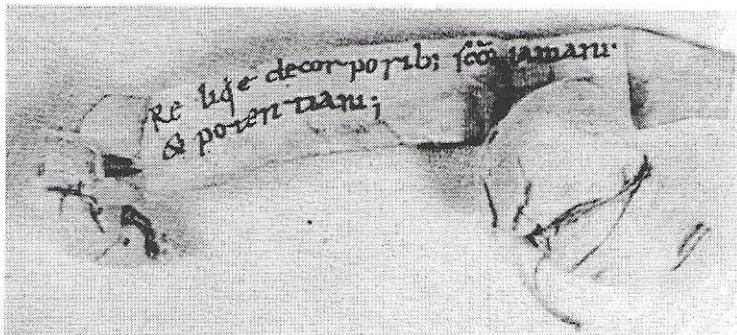 Re liqe decor porib; scōꝝ
& poten tiani;